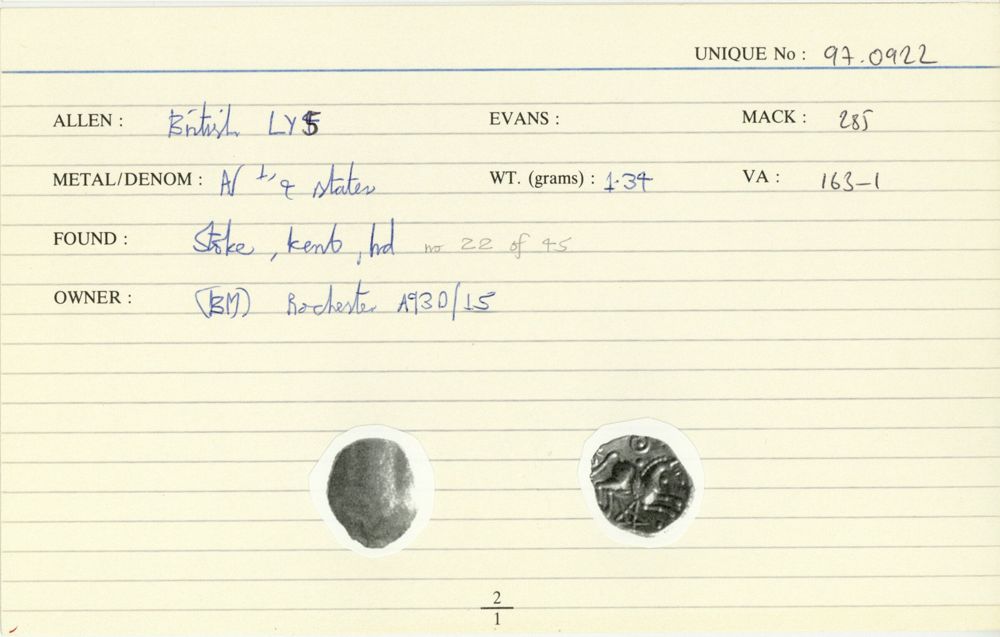 UNIQUE No : 97.0922
ALLEN : British LY5 EVANS : MACK : 285
METAL/DENOM : A/ 1/4 stater WT. (grams) : 1.34 VA : 163-1
FOUND : Stoke, Kent, hd no 22 of 45
OWNER : (BM) Rochester A93D/15
2
1